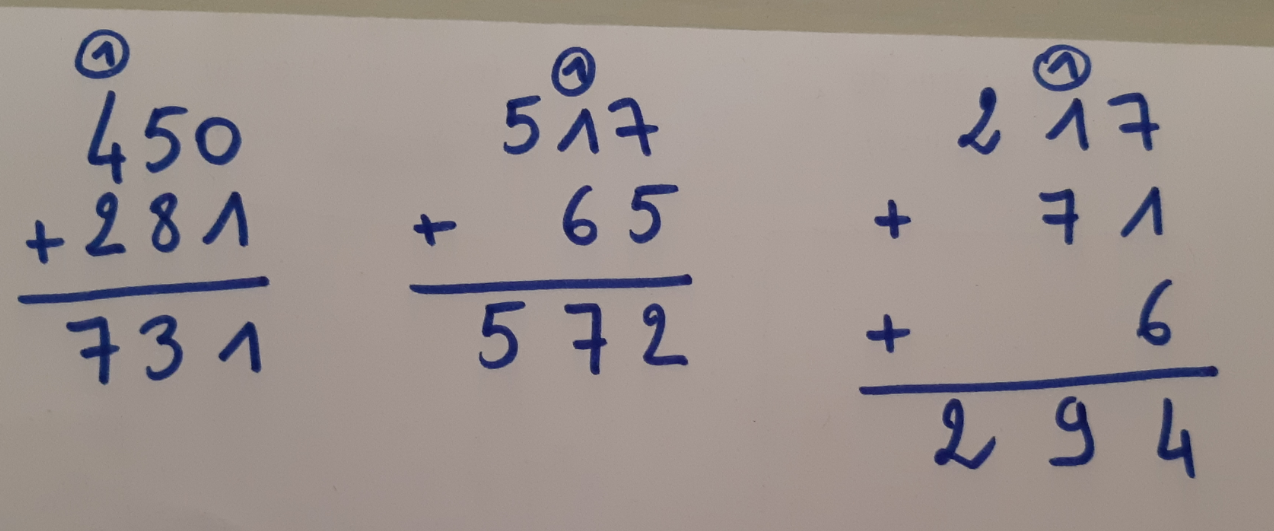 ①
450
+281
731
①
517
+ 65
572
①
217
+ 71
+ 6
294